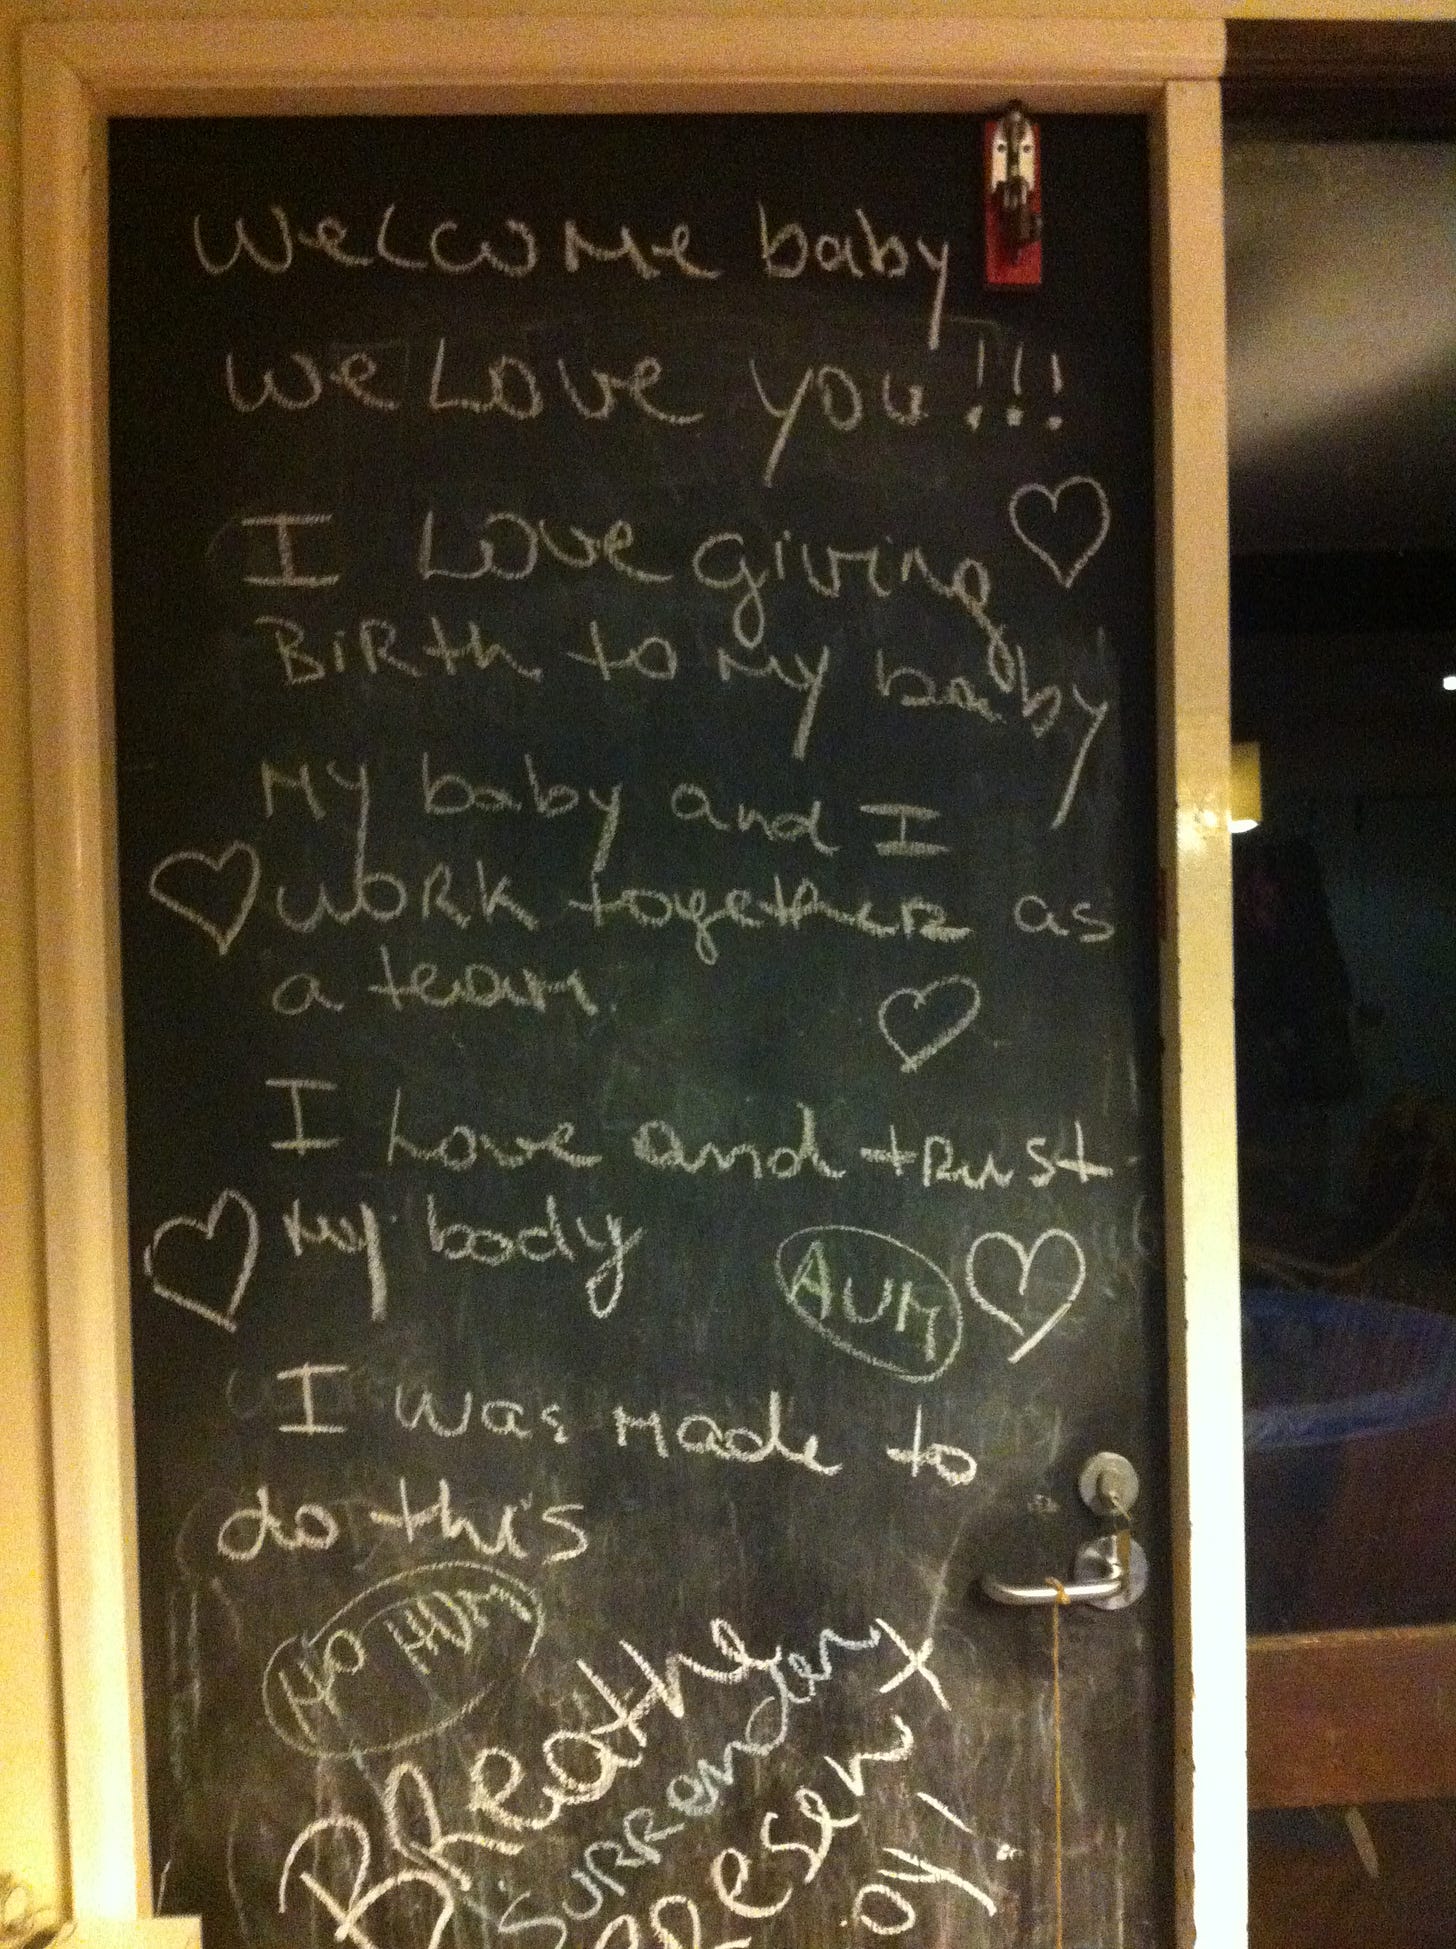 Welcome baby
We Love you!!!
I Love giving
BiRth to My baby
My baby and I
woRk togetheR as
a team
I Love and tRust
My body
AUM
I was Made to
do this
HO HUM
BReathe
SURRender
pResent